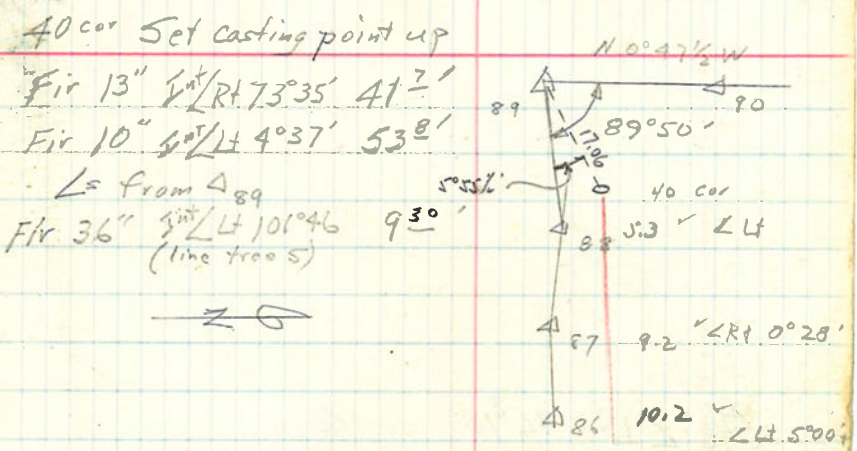 40 cor Set casting point up
Fir 13" ∠Rt 73°35' 41⁷'
Fir 10" ∠Lt 4°37' 53⁸'
∠s from △89
Fir 36" ∠Lt 101°46 9³⁰'
(line tree 5)
N
N 0°47½ W
89
90
89°50'
17.06
5°55½'
40 cor
88 5.3 ✓ ∠Lt
87 9.2 ✓ ∠Rt 0°28'
86 10.2 ✓
∠Lt 5°00'